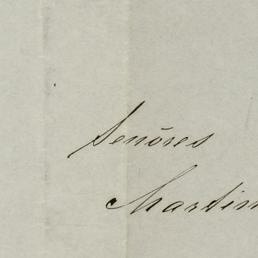 Señores
Martin